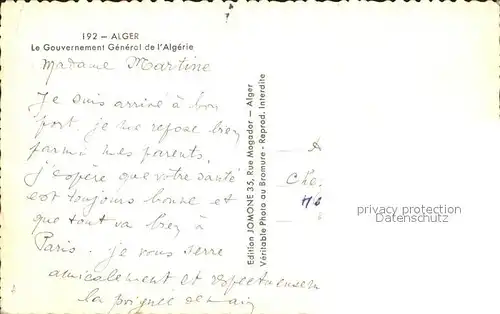 192 — ALGER
Le Gouvernement Général de l'Algérie
Madame Martine
Je suis arrivé à bon
port. je me repose bien
parmi mes parents.
j'espère que votre santé
est toujours bonne et
que tout va bien à
Paris. je vous serre
amicalement et respectueusem
la poignée de main
Edition JOMONE 35, Rue Mogador — Alger
Véritable Photo au Bromure - Reprod. Interdite
Che
privacy protection
Datenschutz